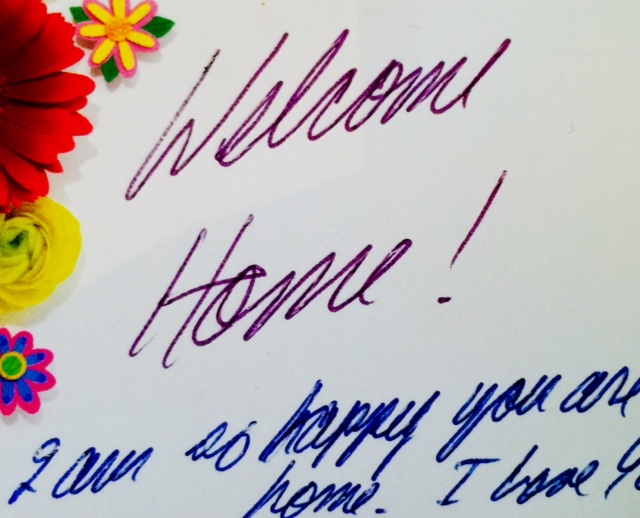 Welcome
Home!
I am so happy you are
home. I Love